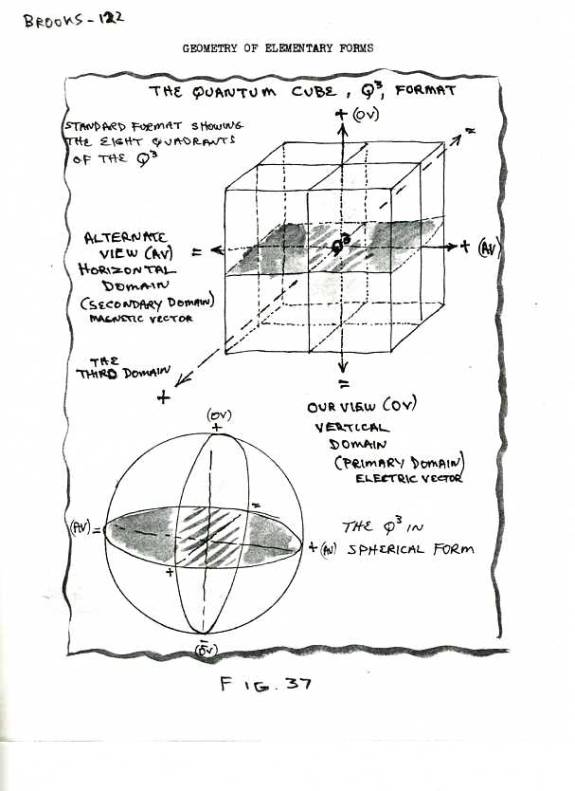 BROOKS-122
GEOMETRY OF ELEMENTARY FORMS
THE QUANTUM CUBE, Q³, FORMAT
+ (OV)
=
STANDARD FORMAT SHOWING
THE EIGHT QUADRANTS
OF THE Q³
Q³
ALTERNATE
VIEW (AV) =
HORIZONTAL
DOMAIN
(SECONDARY DOMAIN)
MAGNETIC VECTOR
+ (AV)
THE
THIRD DOMAIN
+
=
OUR VIEW (OV)
VERTICAL
DOMAIN
(PRIMARY DOMAIN)
ELECTRIC VECTOR
(OV)
+
=
(AV) =
+
+ (AV)
THE Q³ IN
SPHERICAL FORM
=
(OV)
FIG. 37